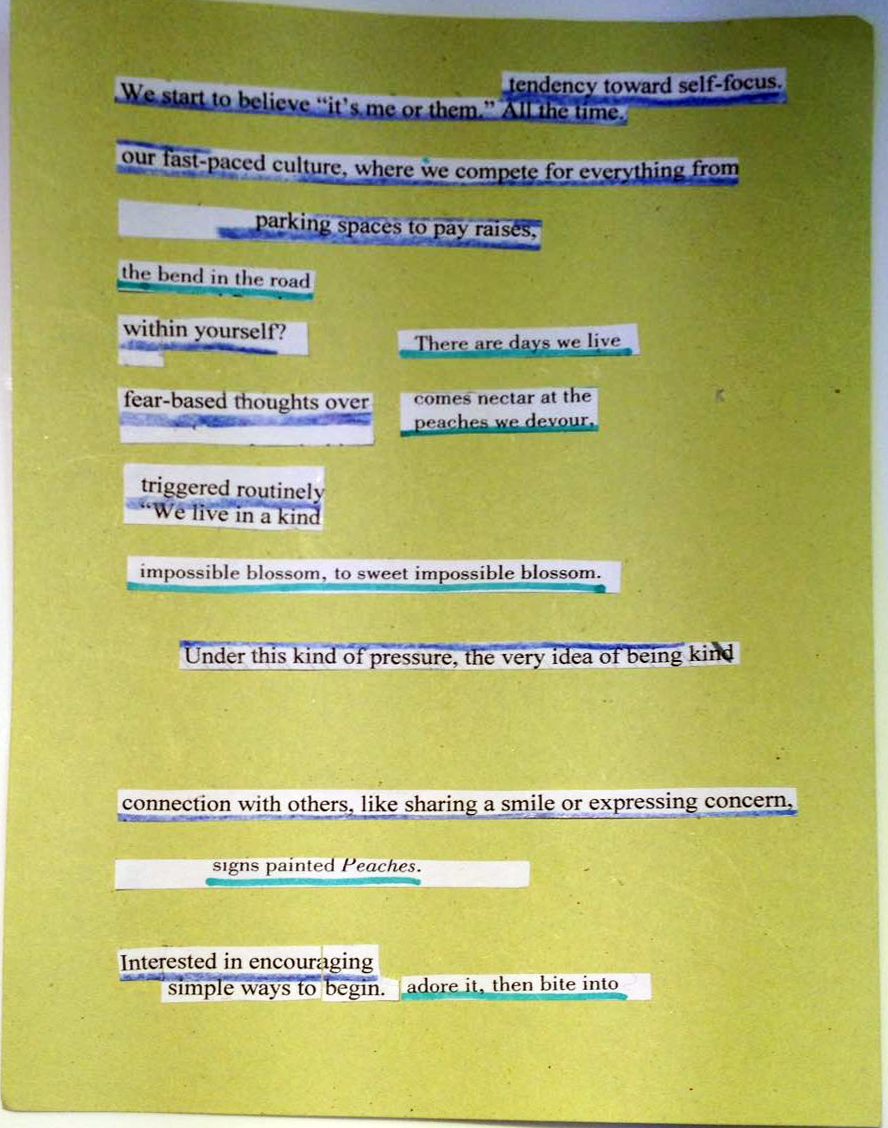 tendency toward self-focus.
We start to believe “it’s me or them.” All the time.
our fast-paced culture, where we compete for everything from
parking spaces to pay raises,
the bend in the road
within yourself?
There are days we live
fear-based thoughts over
comes nectar at the
peaches we devour,
triggered routinely
“We live in a kind
impossible blossom, to sweet impossible blossom.
Under this kind of pressure, the very idea of being kind
connection with others, like sharing a smile or expressing concern,
signs painted Peaches.
Interested in encouraging
simple ways to begin. adore it, then bite into